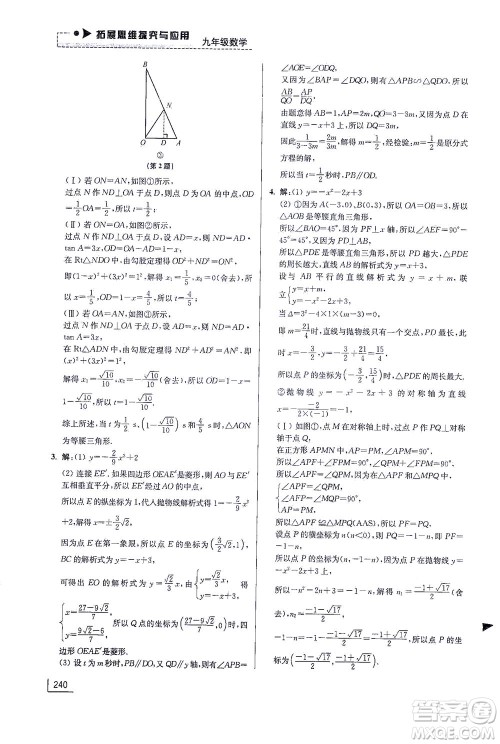 拓展思维探究与应用
九年级数学
B
N
O D A
③
(第3题)
(Ⅰ) 若 ON=AN, 如图①所示,
过点 N 作 ND⊥OA 于点 D, 则 OD=AD=
1/2 OA=1/2, 所以 t=1/2;
(Ⅱ) 若 ON=OA, 如图②所示,
过点 N 作 ND⊥OA 于点 D, 设 AD=x, ND=AD·
tan A=3x, OD=OA-AD=1-x,
在 Rt△NOD 中, 由勾股定理得 OD²+ND²=ON²,
即 (1-x)²+(3x)²=1², 解得 x₁=1/5, x₂=0(舍去),
所以 x=1/5, OD=1-x=4/5, 所以 t=4/5;
(Ⅲ) 若 OA=AN, 如图③所示,
过点 N 作 ND⊥OA 于点 D, 设 AD=x, ND=AD·
tan A=3x,
在 Rt△AND 中, 由勾股定理得 ND²+AD²=AN²,
即 (x)²+(3x)²=1²,
解得 x₁=√10/10, x₂=-√10/10(舍去),
所以 OD=1-x=1-√10/10, 所以 t=1-√10/10.
综上所述, 当 t 为 1/2 s、(1-√10/10) s 和 4/5 s 时, △AON
为等腰三角形.
3. 解: (1) y=-2/9 x²+2
(2) 连接 EE′, 如果四边形 OEAE′ 是菱形, 则 AO 与 EE′
互相垂直平分, 且 EE′ 经过 AO 的中点,
所以点 E 的纵坐标为 1, 代入抛物线解析式得 1=-2/9 x²
+2, 解得 x=±3/2√2,
因为点 E 在第一象限, 所以点 E 为 (3/2√2, 1), 设直线
BC 的解析式为 y=
可得出 EO 的解析式为 y=√2/3 x, 由
解得
{x=(27-9√2)/7
y=(9√2-6)/7, 所以当 Q 点的坐标为 ((27-9√2)/7, (9√2-6)/7) 时, 四
边形 OEAE′ 是菱形.
(3) 设 t 为 m 秒时, PB∥DO, 又 QD∥y 轴, 则有 ∠APB=
∠AOE=∠ODQ,
又因为 ∠BAP=∠DQO, 则有 △APB∽△QDO, 所以
AB/QO=AP/DQ,
由题意得 AB=2, AP=2m, QO=3-3m, 又因为点 D 在
直线 y=-x+3 上, 所以 DQ=3m,
因此 2/(3-3m)=2m/3m, 解得 m=1/2, 经检验: m=1/2 是原分式
方程的解.
所以当 t=1/2 秒时, PB∥OD.
4. 解: (1) y=-x²-2x+3
(2) ①因为 y=-x²-2x+3, 所以 OA=OB=3, 所以
△AOB 是等腰直角三角形,
所以 ∠BAO=45°. 因为 PF⊥x 轴, 所以 ∠AEF=
45°. 又因为 PD⊥AB,
所以 △PDE 是等腰直角三角形, 所以 PD 越大, △PDE
的周长越大,
设与 AB 平行的直线解析式为 y=x+m, 联立
{y=x+m
y=-x²-2x+3,
当 Δ=3²-4×1×(m-3)=0,
即 m=21/4 时, 直线与抛物线只有一个交点, PD 最大, 此
时点 x=-3/2, y=-3/2+21/4=15/4, △PDE 周长最大,
所以点 P 的坐标为 (-3/2, 15/4).
②抛物线 y=-x²-2x+3 的对称轴为直线 x=
-(-2)/(2×(-1))=-1,
(Ⅰ) 如图①所示, 点 M 在对称轴上时, 过点 P 作 PQ⊥对称
轴于点 Q,
在正方形 APMN 中, AP=PM, ∠APM=90°,
所以 ∠APF+∠FPM=90°, ∠QPM+∠FPM=90°,
所以 ∠APF=∠QPM. 因为在 △APF 和 △MPQ 中,
{∠APF=∠QPM
∠AFP=∠MQP=90°,
AP=PM
所以 △APF≌△MPQ(AAS), 所以 PF=PQ,
设点 P 的横坐标为 n(n<0), 则 PQ=-1-n,
即 PF=-1-n, 所以点 P 的坐标为 (n, -1-n),
因为点 P 在抛物线 y=-x²-2x+3 上,
所以 -n²-2n+3=-1-n,
所以 -n²-n+4=0, 解得 n₁=(-1+√17)/2 (舍
去), n₂=(-1-√17)/2, -1-n=-1-(-1-√17)/2=
(-1+√17)/2, 所以点 P 的坐标为
((-1-√17)/2, (-1+√17)/2).
240
答案圈
MXQE.COM